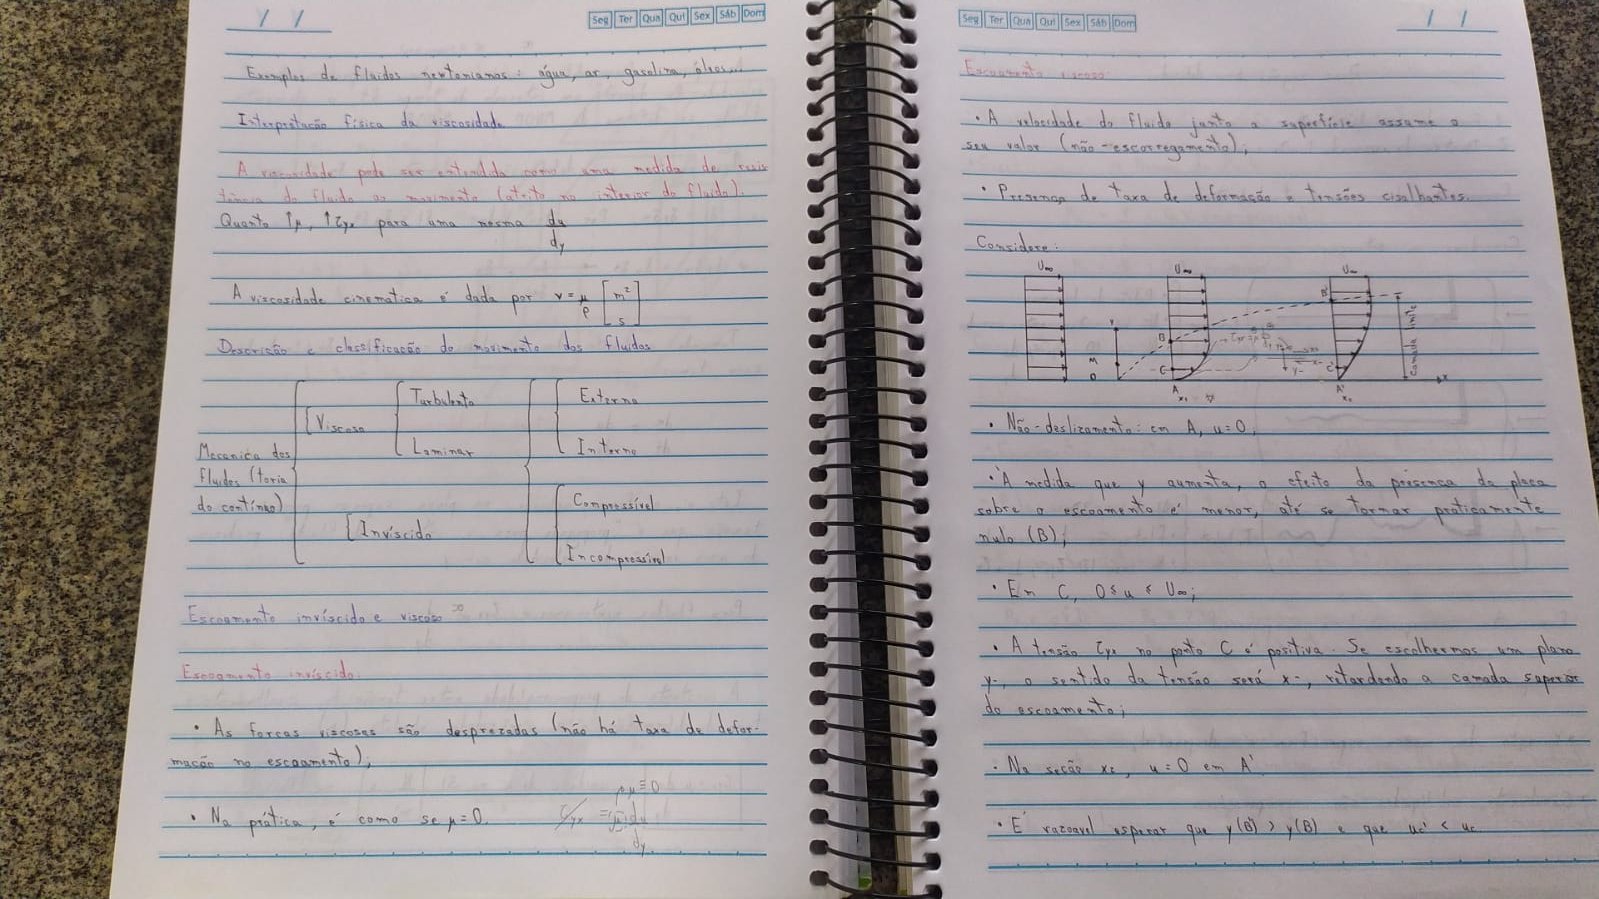 / /
Seg Ter Qua Qui Sex Sáb Dom
Exemplos de fluidos newtonianos: água, ar, gasolina, óleos...
Interpretação física da viscosidade
A viscosidade pode ser entendida como uma medida de resis
tência do fluido ao movimento (atrito no interior do fluido).
Quanto ↑μ, ↑τyx para uma mesma du
dy
A viscosidade cinemática é dada por ν = μ [m²
ρ s]
Descrição e classificação do movimento dos fluidos
Turbulento
Externo
Viscoso
Laminar
Interno
Mecanica dos
fluidos (toria
do contínuo)
Compressível
Invíscido
Incompressível
Escoamento invíscido e viscoso
Escoamento invíscido
• As forças viscosas são desprezadas (não há taxa de defor-
mação no escoamento);
• Na prática, é como se μ=0.
τyx = μ du
dy
μ=0
Seg Ter Qua Qui Sex Sáb Dom
/ /
Escoamento viscoso
• A velocidade do fluido junto a superfície assume o
seu valor (não-escorregamento);
• Presença de taxa de deformação e tensões cisalhantes.
Considere:
U∞ U∞ U∞
B'
Y
B
M
C C'
O
A A' x
x₁ x₂
camada limite
• Não-deslizamento: em A, u=0;
• À medida que y aumenta, o efeito da presença da placa
sobre o escoamento é menor, até se tornar praticamente
nulo (B);
• Em C, 0≤u≤U∞;
• A tensão τyx no ponto C é positiva. Se escolhermos um plano
y-, o sentido da tensão será x-, retardando a camada superior
do escoamento;
• Na seção x₂, u=0 em A'.
• É razoavel esperar que y(B') > y(B) e que uc' < uc